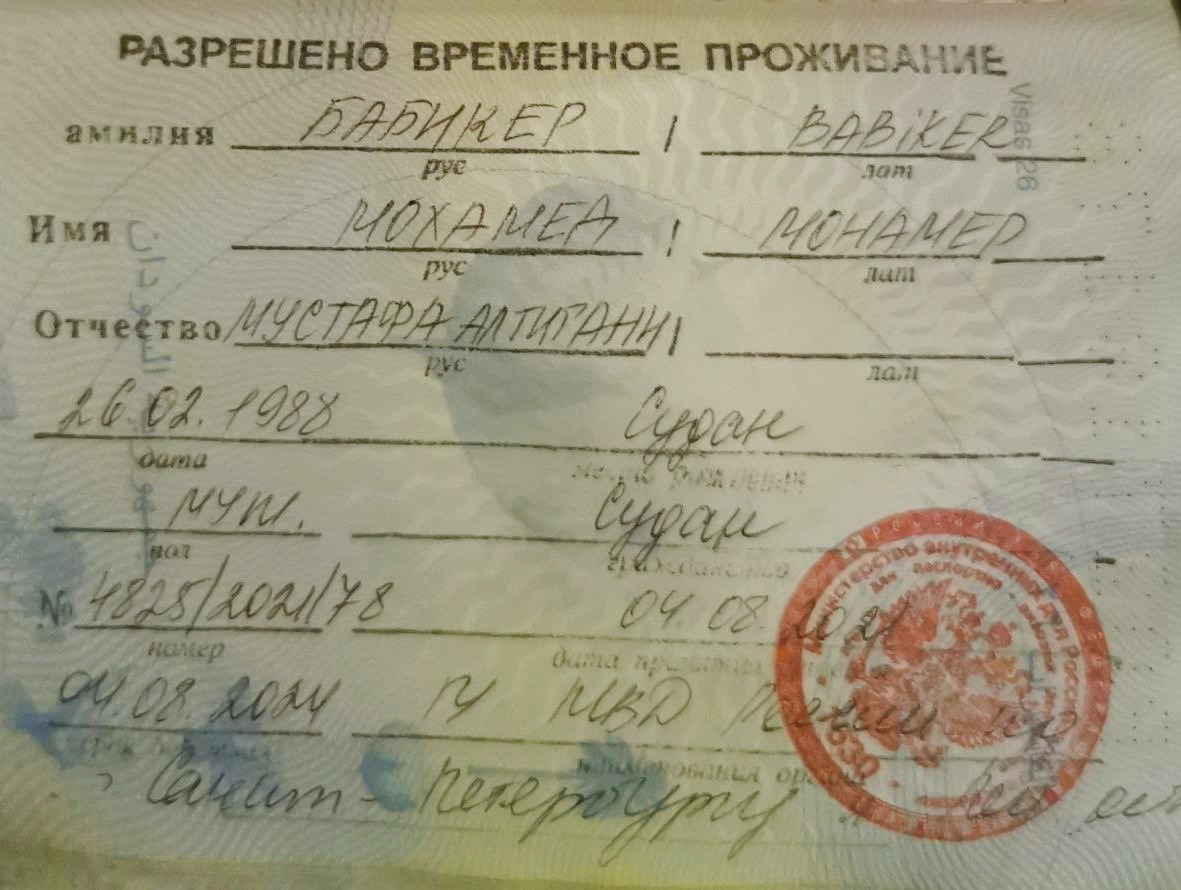 РАЗРЕШЕНО ВРЕМЕННОЕ ПРОЖИВАНИЕ
амилия БАБИКЕР / BABiKER
рус лат
Имя МОХАМЕД / MOHAMED
рус лат
Отчество МУСТАФА АЛТИГАНИ /
рус лат
26.02.1988 Судан
дата место рождения
муж. Судан
пол гражданство
№ 4825/2021/78 04.08.2021
номер дата принятия
04.08.2024 ГУ МВД России по
наименования органа
Санкт-Петербургу и
Visas 26
Министерство внутренних дел России